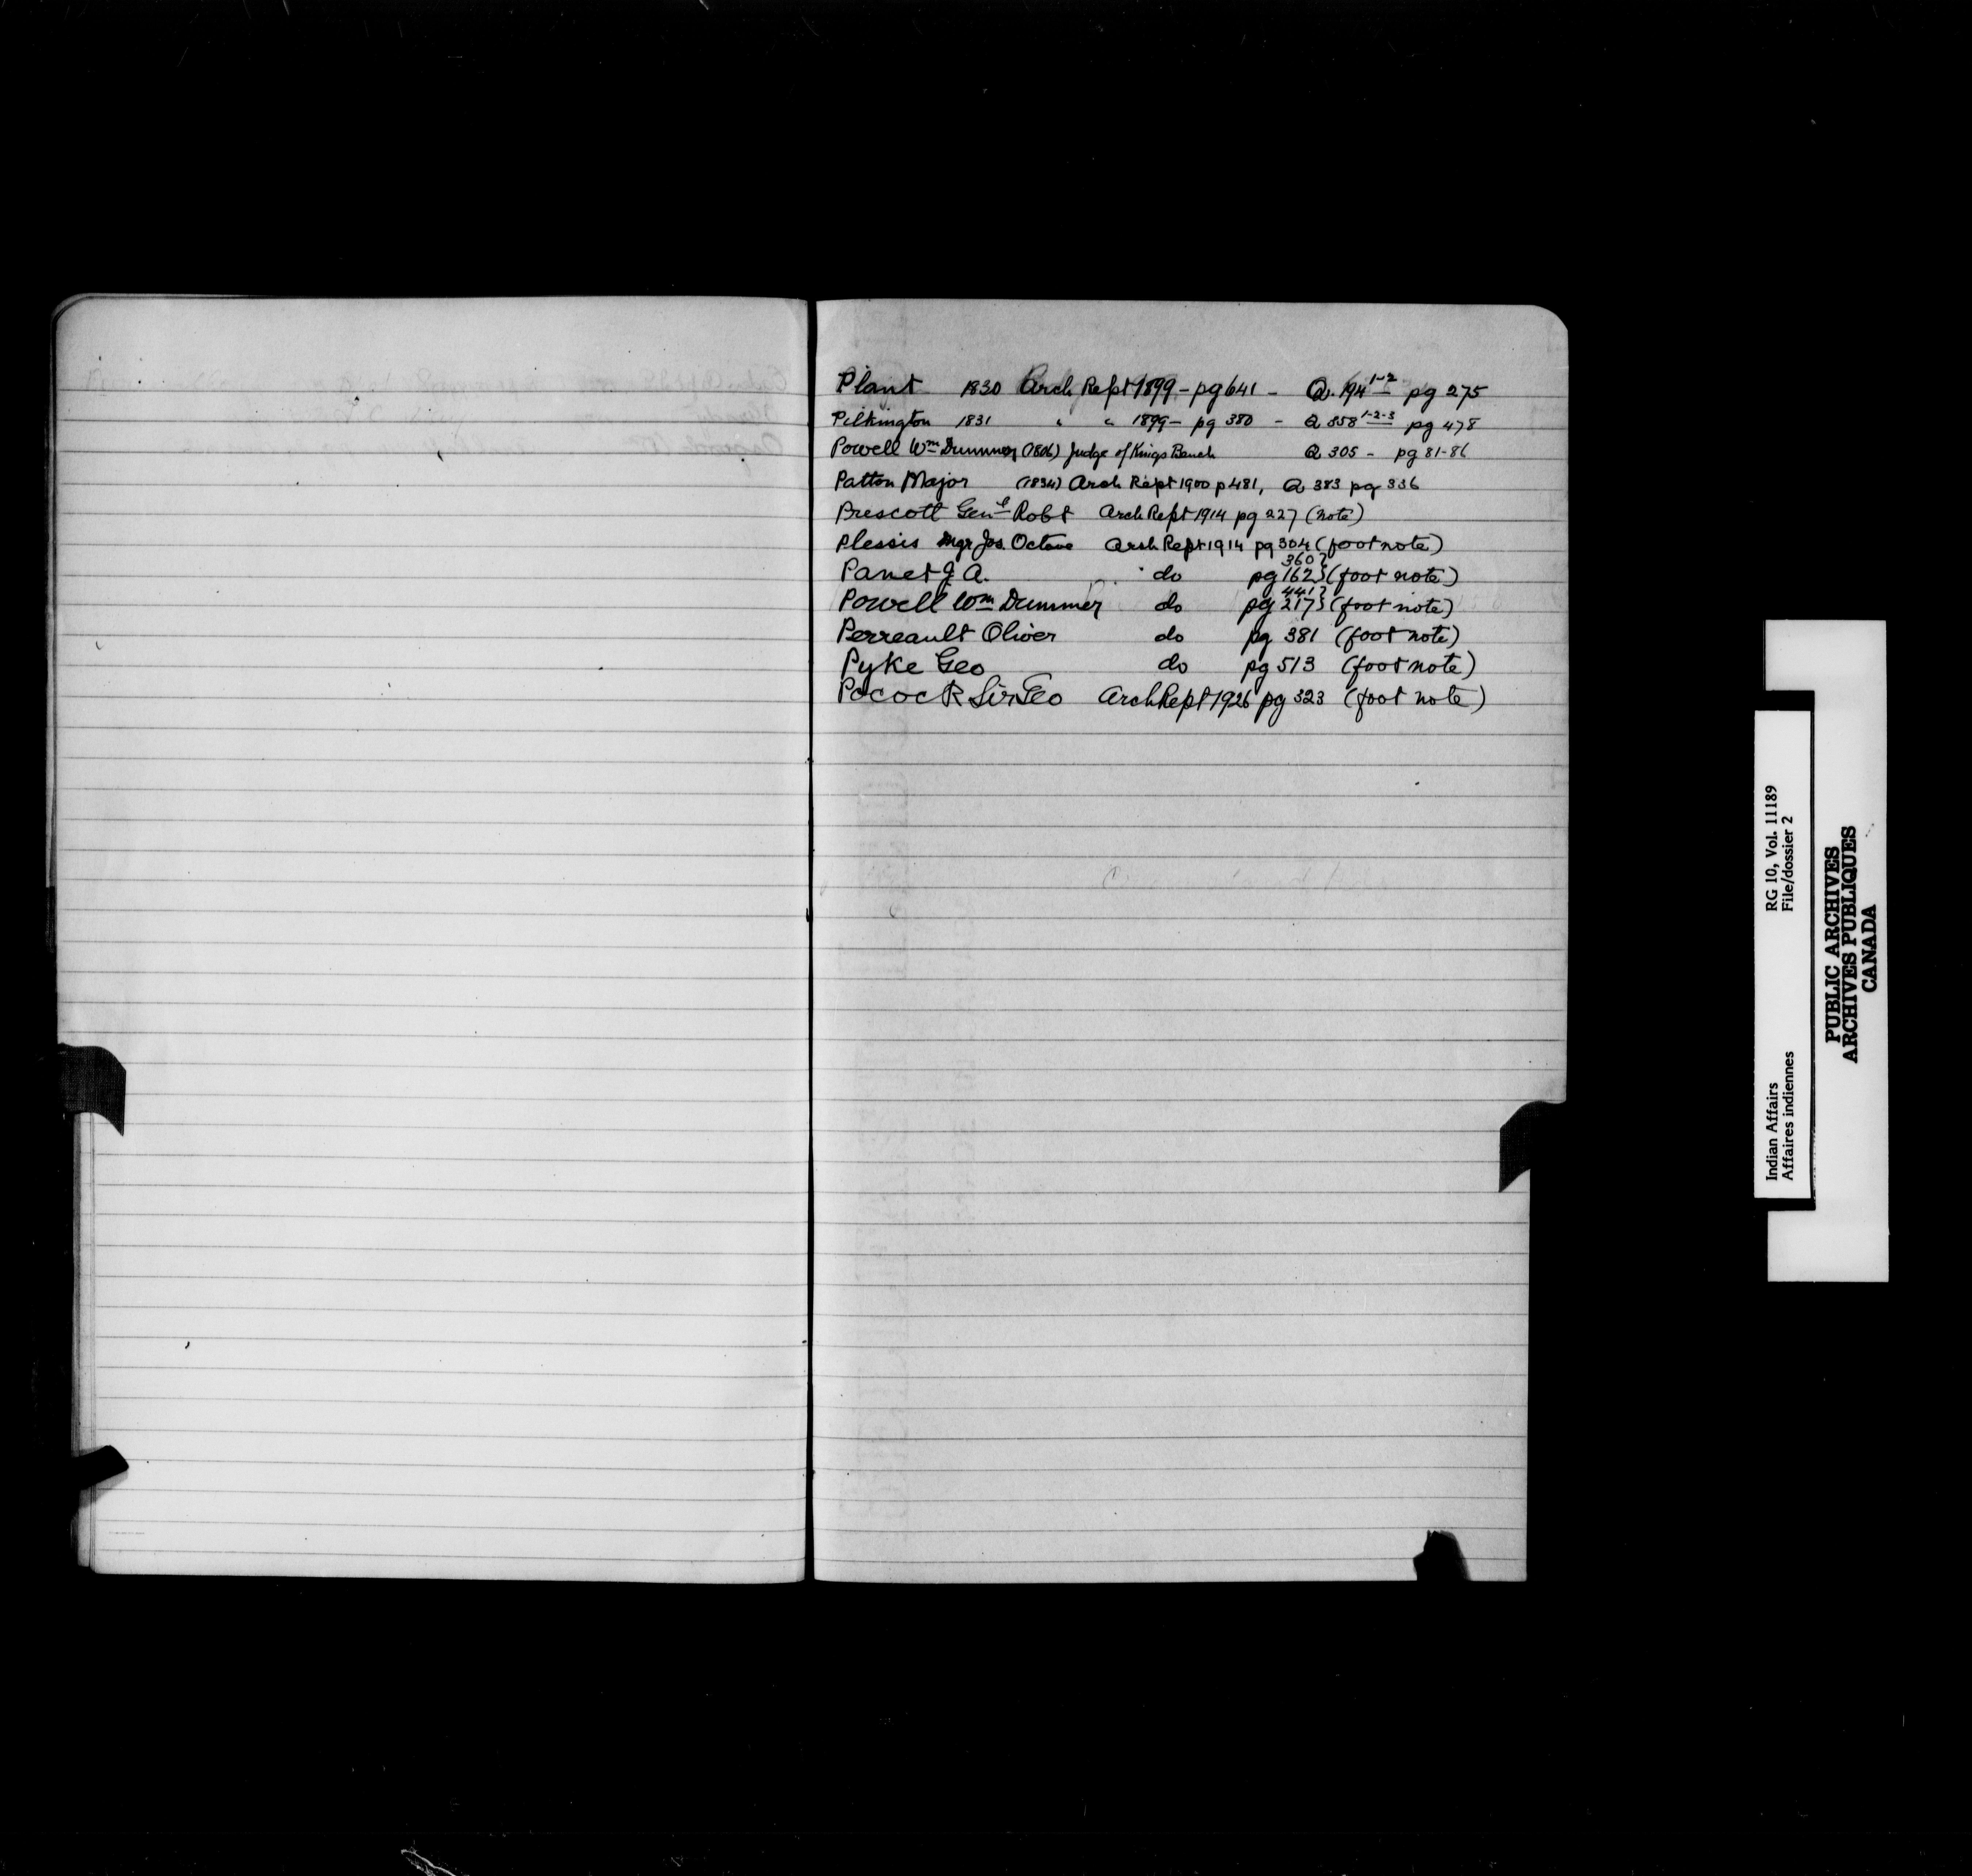 Plant 1830 Arch Rept 1899 - pg 641 - Q. 194 1-2 pg 275
Pilkington 1831 " " 1899 - pg 380 - Q 358 1-2-3 pg 478
Powell Wm Dummer (1806) Judge of Kings Bench Q 305 - pg 81-86
Patton Major (1834) Arch Rept 1900 p 481, Q 383 pg 336
Prescott Genl Robt Arch Rept 1914 pg 227 (note)
Plessis Mgr Jos. Octave Arch Rept 1914 pg 304 (foot note)
Panet J. A. do pg 162 360} (foot note)
Powell Wm Dummer do pg 217 441} (foot note)
Perreault Oliver do pg 381 (foot note)
Pyke Geo do pg 513 (foot note)
Pocock Sir Geo Arch Rept 1926 pg 323 (foot note)
Indian Affairs RG 10, Vol. 11189
Affaires indiennes File/dossier 2
PUBLIC ARCHIVES
ARCHIVES PUBLIQUES
CANADA